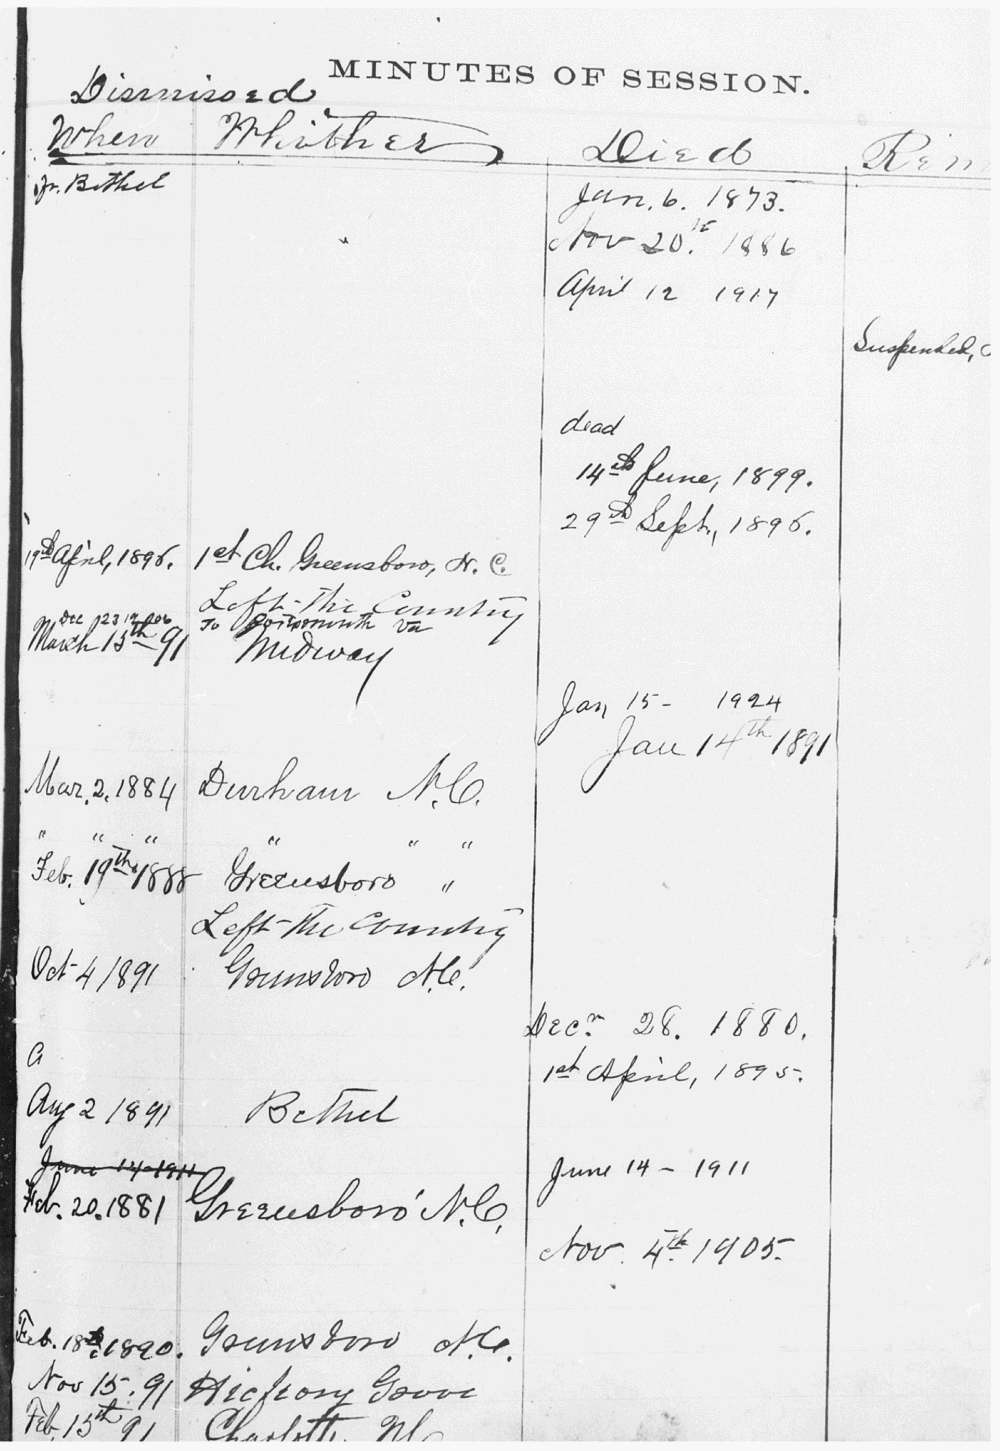 MINUTES OF SESSION.
Dismissed
When Whither Died Rem
fr. Bethel Jan. 6. 1873.
Nov 20. 1886
April 12 1917
Suspended,
dead
14th June, 1899.
29th Sept., 1896.
19th April, 1896. 1st Ch. Greensboro, N. C.
Left The Country
Dec 23 To Portsmouth Va
March 15th 91 Midway
Jan 15 - 1924
Jan 14th 1891
Mar. 2. 1884 Durham N.C.
" " " " " "
Feb. 19th 1888 Greensboro "
Left The Country
Oct 4 1891 Greensboro N.C.
Decr 28. 1880.
a 1st April, 1895.
Aug 2 1891 Bethel
June 14 1911 June 14 - 1911
Feb. 20. 1881 Greensboro N.C.
Nov. 4th 1905.
Feb. 18th, 1890. Greensboro N.C.
Nov 15. 91 Hickory Grove
Feb. 15th 91 Charlotte NC